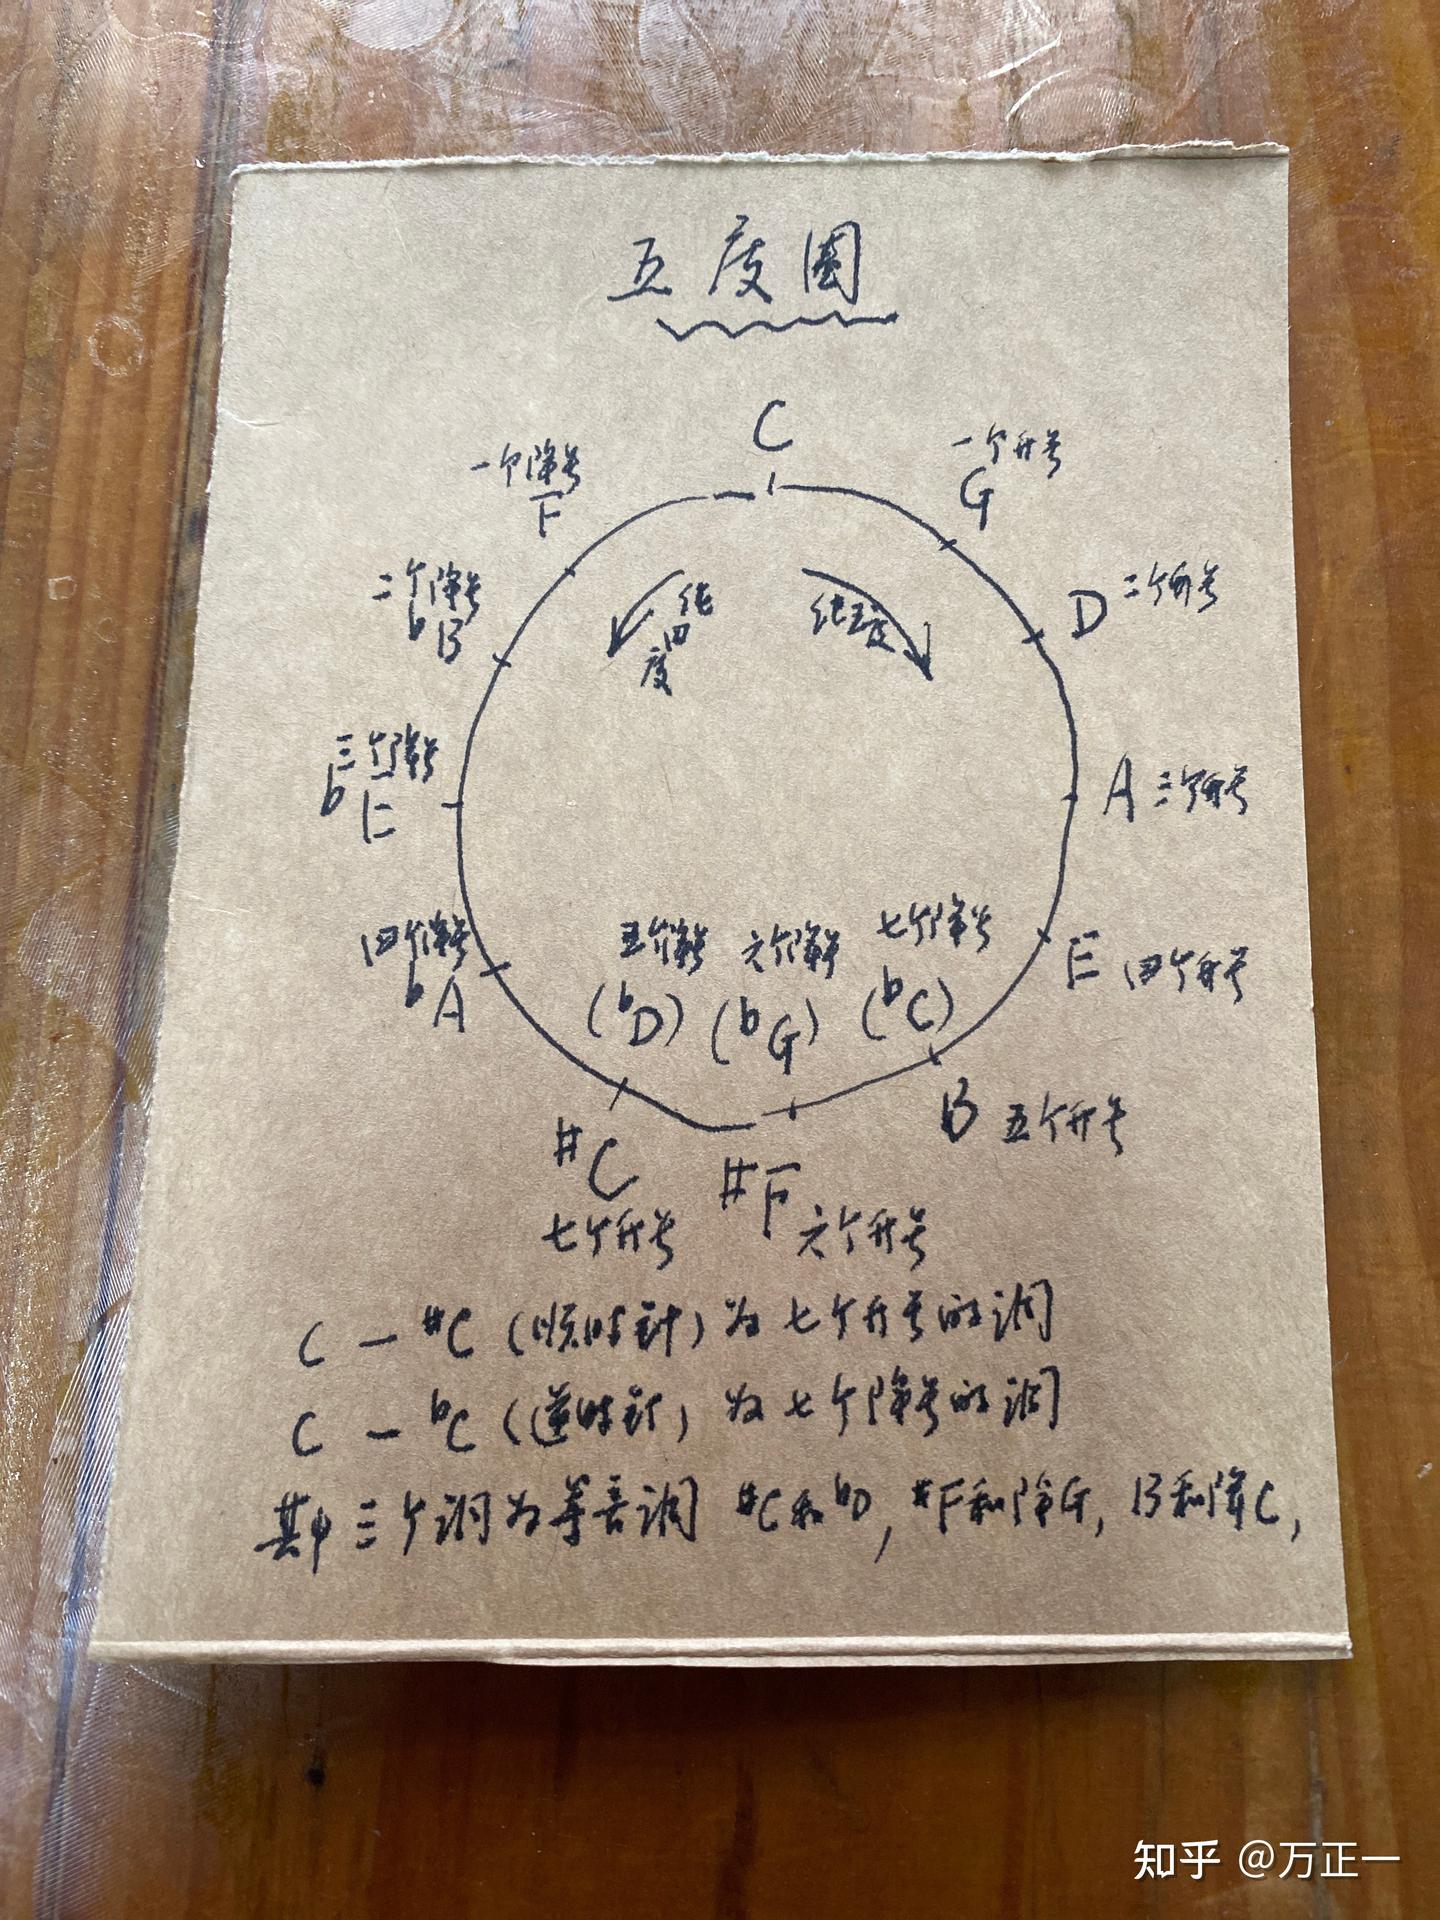 五度圈
C
一个降号
F
一个升号
G
二个降号
bB
D 二个升号
纯四度
纯五度
三个降号
bE
A 三个升号
四个降号
bA
五个降号 六个降号 七个降号
(bD) (bG) (bC)
E 四个升号
B 五个升号
#C
七个升号
#F 六个升号
C — #C (顺时针) 为七个升号的调
C — bC (逆时针) 为七个降号的调
其中三个调为等音调 #C和bD, #F和降G, B和降C,
知乎 @万正一